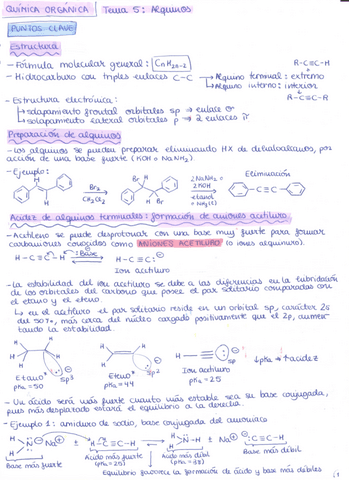 QUÍMICA ORGÁNICA Tema 5: Alquinos
PUNTOS CLAVE
Estructura
- Fórmula molecular general: CnH2n-2
R-C≡C-H
- Hidrocarburo con triples enlaces C-C → Alquino terminal: extremo
→ Alquino interno: interior
R-C≡C-R
- Estructura electrónica:
↳ solapamiento frontal orbitales sp → enlace σ
↳ solapamiento lateral orbitales p → 2 enlaces π
Preparación de alquinos
- Los alquinos se pueden preparar eliminando HX de dehaloalcanos, por
acción de una base fuerte (KOH o NaNH2)
- Ejemplo:
H
H
Br2
CH2Cl2
Br H
H Br
2 NaNH2 o
2 KOH
etanol
o NH3(l)
Eliminación
-C≡C-
Acidez de alquinos terminales: formación de aniones acetiluro
- Acetileno se puede desprotonar con una base muy fuerte para formar
carbaniones conocidos como ANIONES ACETILURO (o iones alquinuro).
H-C≡C-H :Base → H-C≡C:⊖
Ion acetiluro
- La estabilidad del ion acetiluro se debe a las diferencias en la hibridación
de los orbitales del carbono que posee el par solitario comparadas con
el etano y el eteno.
↳ en el acetiluro el par solitario reside en un orbital sp, carácter 2s
del 50%, más cerca del núcleo cargado positivamente que el 2p, aumen-
tando la estabilidad.
H H
H H H
sp3
Etano
pKa = 50
H
H H
sp2
Eteno
pKa = 44
H
sp
Ion acetiluro
pKa = 25
↓pKa ⇒ ↑acidez
- Un ácido será más fuerte cuanto más estable sea su base conjugada,
pues más desplazado estará el equilibrio a la derecha.
- Ejemplo 1: amiduro de sodio, base conjugada del amoniaco
H N⊖ Na⊕ + H-C≡C-H ⇌ H N-H + Na⊕ ⊖:C≡C-H
H
H
Base más fuerte
Ácido más fuerte
(pKa = 25)
Ácido más débil
(pKa = 38)
Base más débil
Equilibrio favorece la formación de ácido y base más débiles